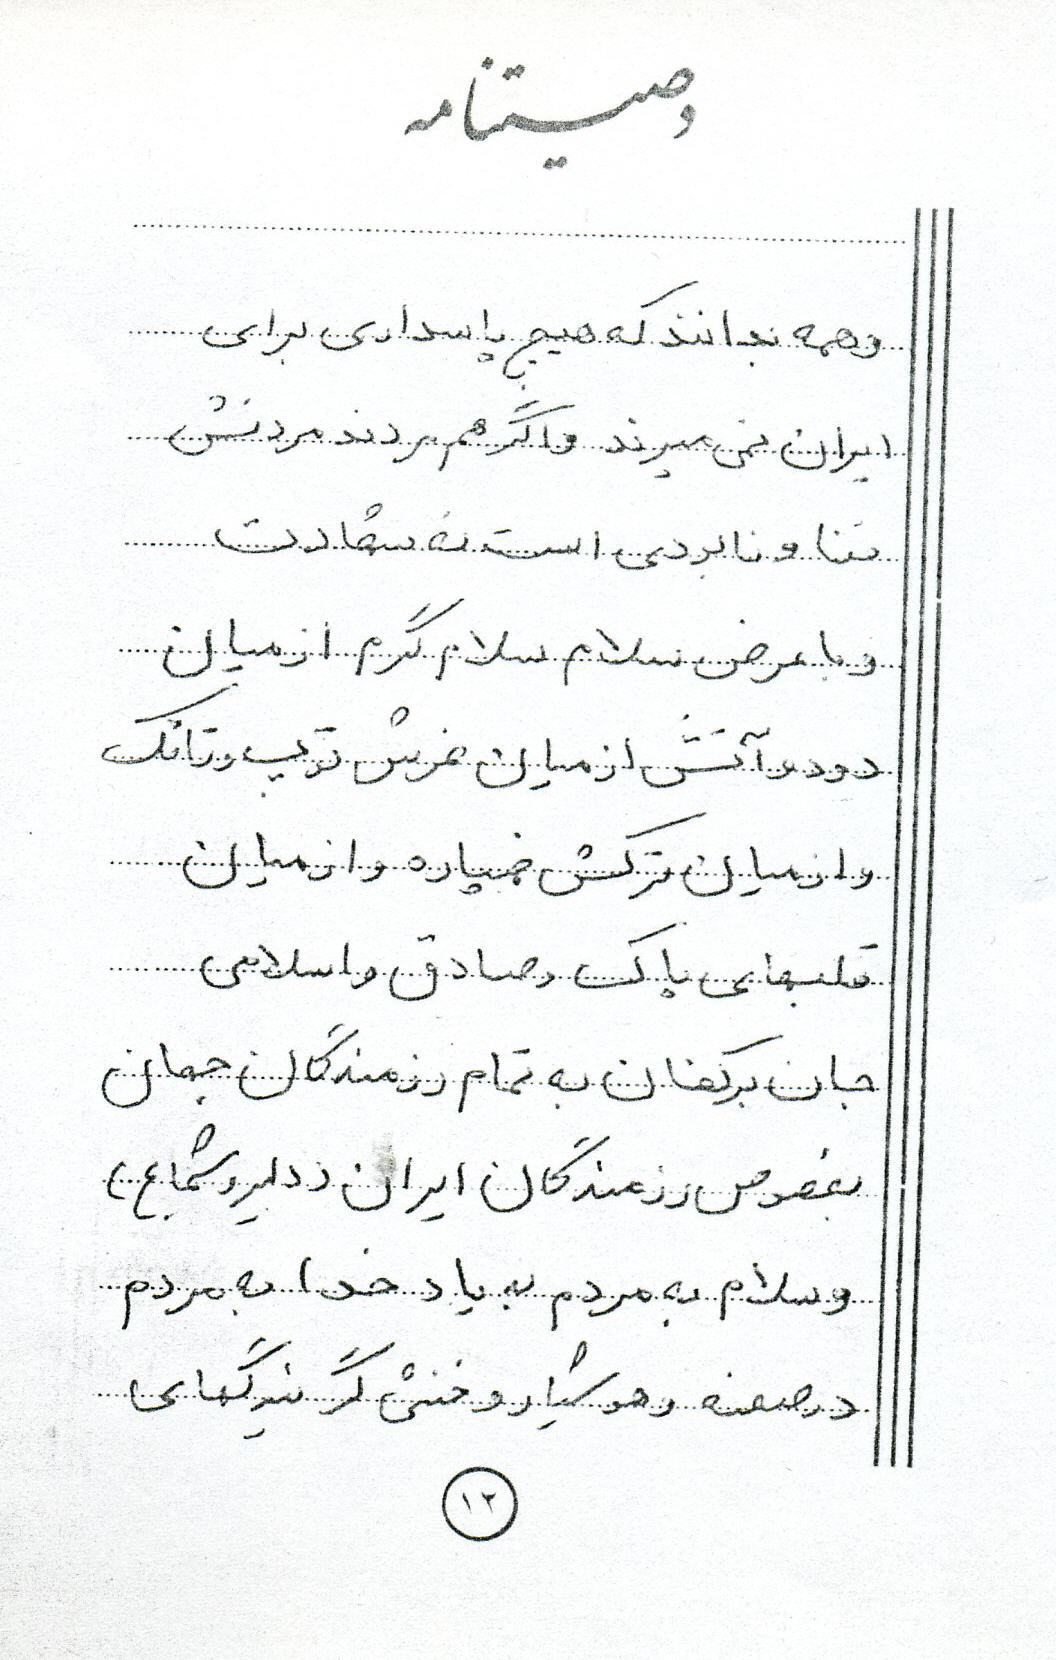 وصیتنامه
وهمه بدانند که هیچ پاسداری برای
ایران نمی میرند واگر هم مردند مردنش
فنا و نابودی است نه شهادت
و با عرض سلام سلام گرم از میان
دود و آتش از میان غرش توپ و تانک
و از میان ترکش خمپاره و از میان
قلبهای پاک و صادق و اسلامی
جان برکفان به تمام رزمندگان جهان
بخصوص رزمندگان ایران (دلیر و شجاع)
و سلام به مردم به یاد خدا به مردم
در صحنه و هوشیار و خنثی گر نیرنگهای
۱۲